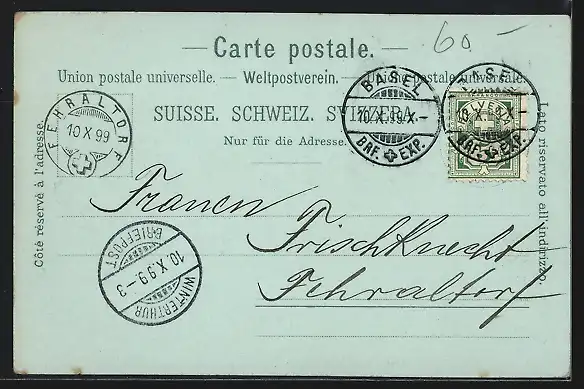 60-
— Carte postale. —
Union postale universelle. — Weltpostverein. — Unione postale universale.
SUISSE. SCHWEIZ. SVIZZERA.
Nur für die Adresse.
Côté réservé à l'adresse.
Lato riservato all'indirizzo.
FEHRALTORF
10 X 99
BASEL
10.X.99.X.-
BRF. EXP.
BASEL
10.X.
BRF. EXP.
HELVETIA
Frauen
Frischknecht
Fehraltorf
BRIEFPOST
10.X.99.-3
WINTERTHUR